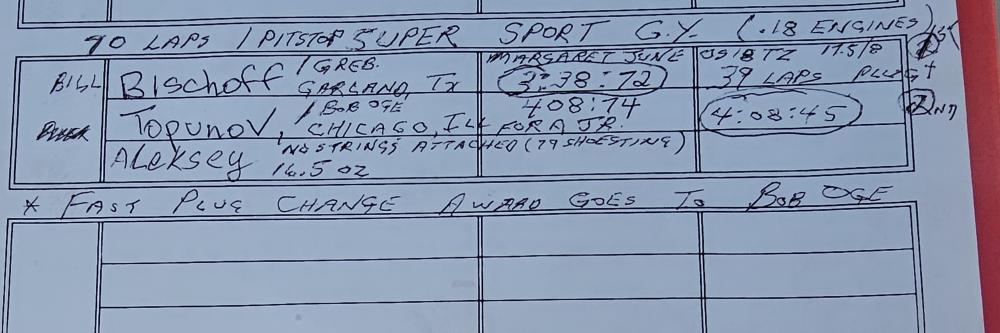 70 LAPS / PITSTOP SUPER SPORT G.Y. (.18 ENGINES)
BILL BISCHOFF / GREB. MARGARET JUNE OS18TZ 17.5/8 1ST
GARLAND, TX 3:38:72 39 LAPS PLUG
/ BOB OGE 408:74 4:08:45 2ND
TOPUNOV, CHICAGO, ILL FOR A JR.
ALEKSEY NO STRINGS ATTACHED (79 SHOESTING)
16.5 OZ
* FAST PLUG CHANGE AWARD GOES TO BOB OGE